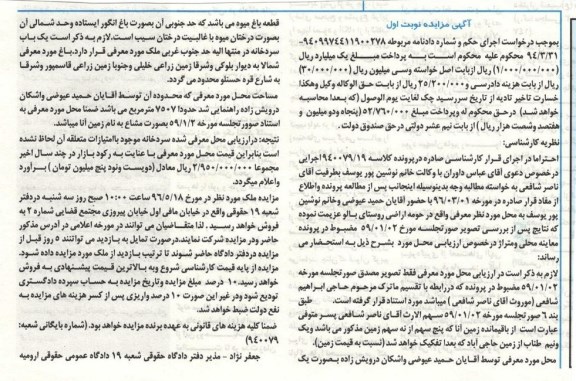 آگهی مزایده نوبت اول
بموجب درخواست اجرای حکم و شماره دادنامه مربوطه ۹۴۰۹۹۷۴۴۱۱۹۰۰۲۷۸-
۹۴/۳/۳۱ محکوم علیه محکوم است به پرداخت مبلغ یک میلیارد ریال
(۱/۰۰۰/۰۰۰/۰۰۰) ریال ازبابت اصل خواسته وسی میلیون ریال (۳۰/۰۰۰/۰۰۰)
ریال از بابت هزینه دادرسی و ۲۵/۲۰۰/۰۰۰ ریال از بابت حق الوکاله وکیل وهکذا
خسارت تاخیر تادیه از تاریخ سررسید چک لغایت یوم الوصول (که بعدا محاسبه
خواهد شد) درحق محکوم له وپرداخت مبلغ ۵۲/۷۶۰/۰۰۰ (پنجاه ودو میلیون و
هفتصد وشصت هزار ریال) از بابت نیم عشر دولتی در حق صندوق دولت.
نظریه کارشناسی:
احتراما در اجرای قرار کارشناسی صادره درپرونده کلاسه ۹۴۰۰۷۹/۱۹ اجرایی
درخصوص دعوی آقای عباس داوران با وکالت خانم نوشین پور یوسف بطرفیت آقای
ناصر شافعی به خواسته مطالبه وجه بدینوسیله اینجانب پس از مطالعه پرونده واطلاع
از مفاد قرار صادره در مورخه ۹۶/۰۳/۰۱ با حضور آقایان حمید عیوضی وخانم نوشین
پور یوسف به محل مورد نظر معرفی واقع در حومه اراضی روستای بالو عزیمت نموده
که نتایج پس از بررسی تصویر صورتجلسه مورخ ۵۹/۰۱/۰۲ مضبوط در پرونده
معاینه محلی ومتراژ درخصوص ارزیابی محل مورد بشرح ذیل به استحضار می
رساند:
لازم به ذکر است در ارزیابی محل مورد معرفی فقط تصویر مصدق صورتجلسه مورخه
۵۹/۰۱/۰۲ مضبوط در پرونده که دررابطه با تقسیم ماترک مرحوم حاجی ابراهیم
شافعی (موروث آقای ناصر شافعی) میباشد مورد استناد قرار گرفته است. طبق
بند ۶ صور تجلسه مورخه ۵۹/۰۱/۰۲ سهم الارث آقای ناصر شافعی پسر متوفی
عبارت است از باقیمانده زمین آنا که پنج سهم از نه سهم زمین مذکور می باشد ویک
ونیم طناب از زمین حاجی آباد که بعدا تفکیک خواهد شد (نسبت به قیمت زمین).
محل مورد معرفی توسط آقایان حمید عیوضی واشکان درویش زاده بصورت یک
قطعه باغ میوه می باشد که حد جنوبی آن بصورت باغ انگور ایستاده وحد شمالی آن
بصورت درختان میوه با غالبیت درختان سیب است. لازم به ذکر است یک باب
سردخانه در منتها الیه حد جنوب غربی ملک مورد معرفی قرار دارد. باغ مورد معرفی
شمالا به دیوار بلوکی وشرقا زمین زراعی خلیلی وجنوبا زمین زراعی قاسمپور وشرقا
به شارع قره حسنلو محدود می گردد.
مساحت محل مورد معرفی که محدوده آن توسط آقایان حمید عیوضی واشکان
درویش زاده راهنمایی شد حدودا ۷۵۰۷ مترمربع می باشد ضمنا محل مورد معرفی به
استناد صور تجلسه مورخه ۵۹/۱/۲ بصورت مشاع به نام زمین آنا میباشد.
نتیجه: درارزیابی محل معرفی شده سردخانه موجود باامتیازات متعلقه آن لحاظ نشده
است بنابراین قیمت محل مورد معرفی با عنایت به رکود بازار در چند سال اخیر
مجموعا ۲/۹۵۰/۰۰۰/۰۰۰ ریال معادل (دویست ونود وپنج میلیون تومان) برآورد
واعلام میگردد.
مزایده ملک مورد نظر در مورخ ۹۶/۵/۱۸ ساعت ۱۰:۰۰ صبح روز سه شنبه دردفتر
شعبه ۱۹ حقوقی واقع در خیابان مافی اول خیابان پیروزی مجتمع قضایی شماره ۲ به
فروش خواهد رسید. لذا متقاضیان می توانند در مورخه اعلامی در آدرس مذکور
حاضر ودر مزایده شرکت نمایند. درصورت تمایل به بازدید می توانند ۵ روز قبل از
مزایده دردفتر دادگاه حاضر شوند تا ترتیب بازدید از ملک مورد مزایده داده شود.
مزایده از پایه قیمت کارشناسی شروع وبه بالاترین قیمت پیشنهادی به فروش
خواهد رسید. ۱۰ درصد مبلغ مزایده وتاریخ مزایده به حساب سپرده دادگستری
تودیع شود ودر غیر این صورت ۱۰ درصد واریزی پس از کسر هزینه های مزایده به
نفع دولت ضبط خواهد شد.
ضمنا کلیه هزینه های قانونی به عهده برنده مزایده خواهد بود. (شماره بایگانی شعبه:
۹۴۰۰۷۹)
جعفر نژاد - مدیر دفتر دادگاه حقوقی شعبه ۱۹ دادگاه عمومی حقوقی ارومیه